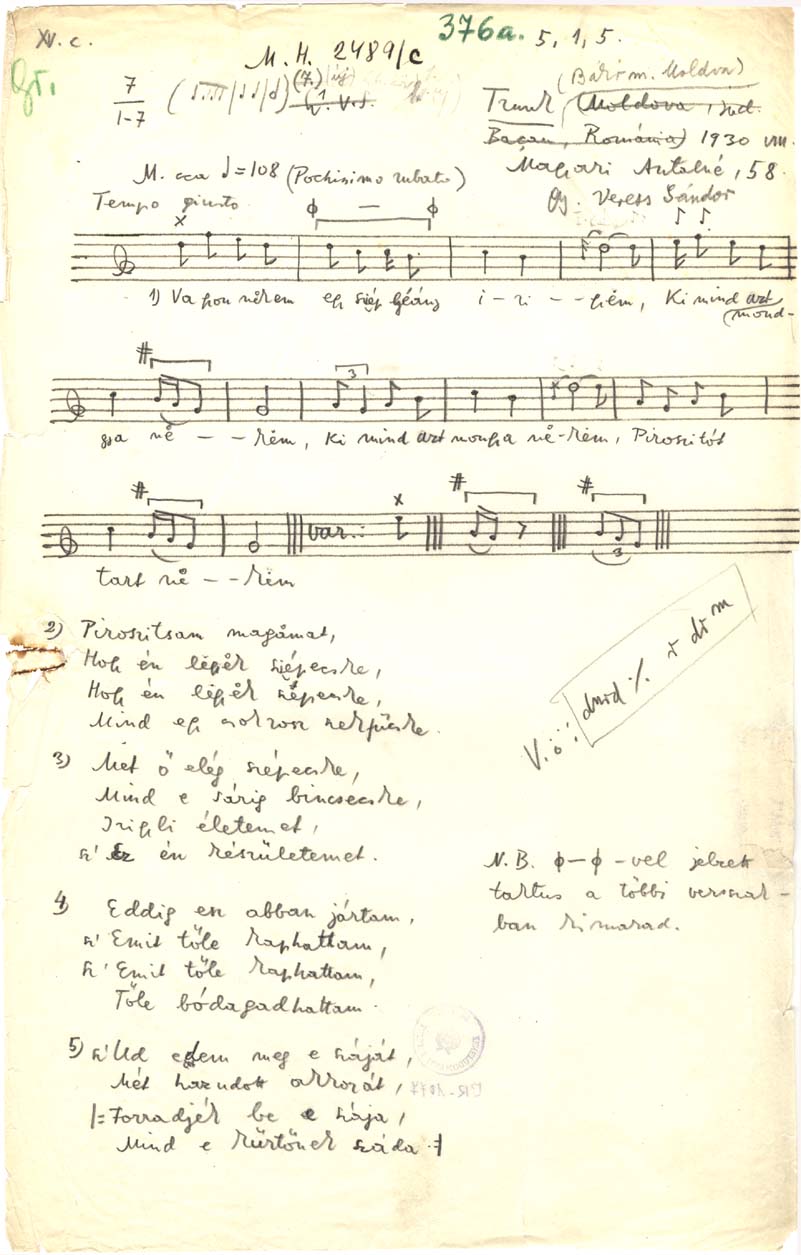 XV. c.
376a. 5, 1, 5.
M. H. 2489/c
7
1-7
(7.)
(Bákó m. Moldva)
Trunk (Moldova, jud.
Bacau, România) 1930 VIII.
Magyari Antalné, 58.
Gy. Veress Sándor
M. cca ♩=108 (Pochissimo rubato)
Tempo giusto
x ϕ — ϕ
1) Va gyon nékem egy szép léány i-ri--gyém, Ki mind azt
mond-
# 3
gya né--kém, Ki mind azt mongya né-kém, Pirosítót
# var.: x # # 3
tart né--kém
2) Pirosítsam magámat,
Hogy én légyék szépecske,
Hogy én légyék szépecske,
Mind egy sokrosz szekfücske.
3) Mét ő elég szépecske,
Mind e sárig bincsecske,
Irigyli életemet,
sz' Ez én készületemet.
4) Eddig en abban jártam,
sz' Emit tőle kaphattam,
sz' Emit tőle kaphattam,
Tőle bódagadhattam.
5) sz' Ud edem meg e száját,
Mét hazudott akkorát,
|:Forradjék be e szája,
Mind e kürtönek száda :|
V. ö:
N.B. ϕ—ϕ-vel jelzett
taktus a többi versszak-
ban kimarad.